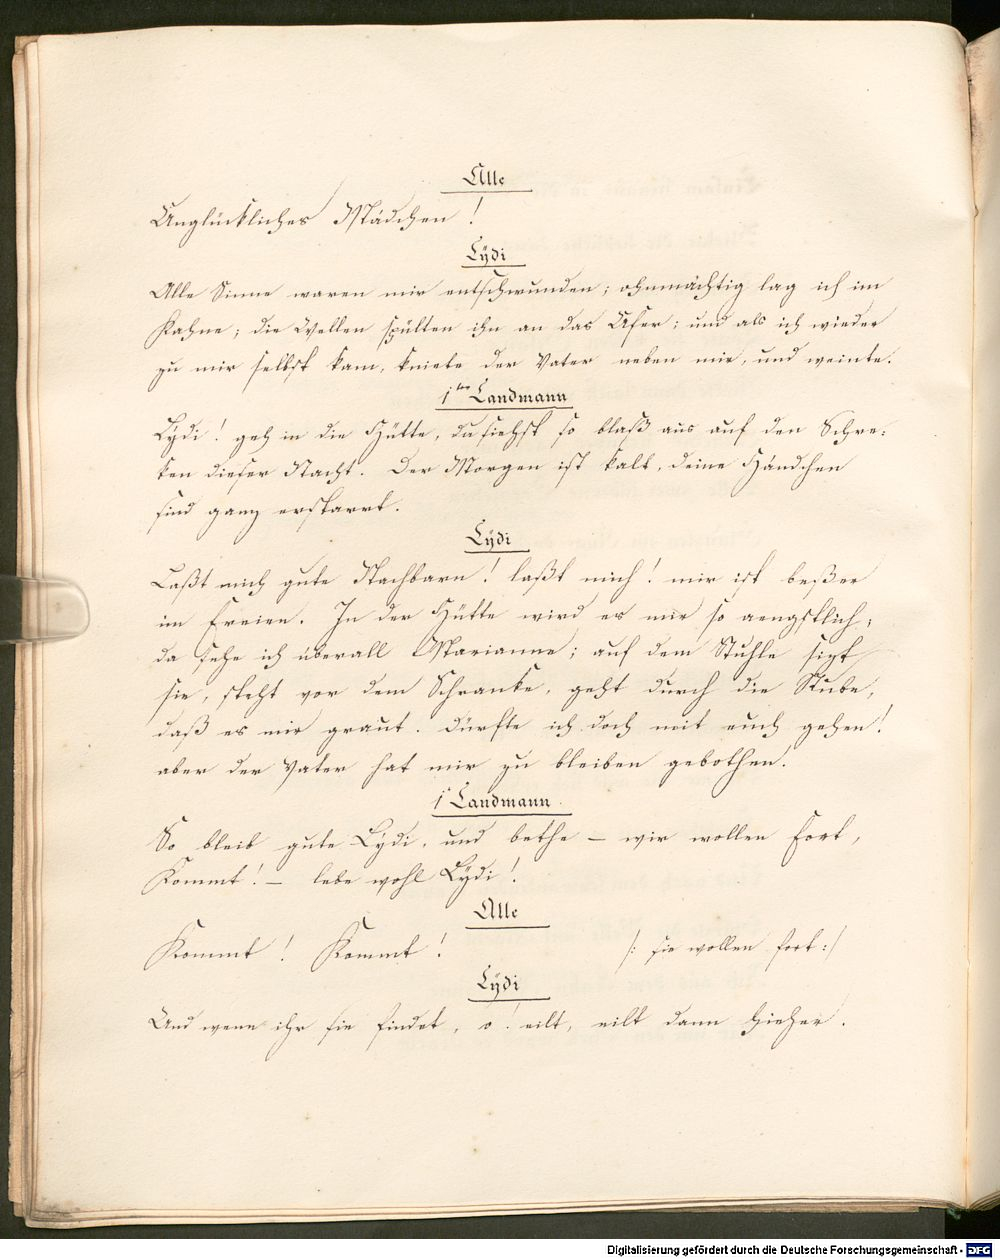 Alle
Unglückliches Mädchen!
Lÿdi
Alle Sinne waren mir entschwunden; ohnmächtig lag ich im
Kahne; die Wellen spülten ihn an das Ufer; und als ich wieder
zu mir selbst kam, kniete der Vater neben mir, und weinte.
1ter Landmann
Lÿdi! geh in die Hütte, du siehst so blaß aus auf den Schre-
ken dieser Nacht. Der Morgen ist kalt, deine Händchen
sind ganz erstarrt.
Lÿdi
Laßt mich gute Nachbarn! laßt mich! mir ist beßer
im Freien. In der Hütte wird es mir so aengstlich;
da sehe ich überall Marianne; auf dem Stuhle sizt
sie, steht vor dem Schranke, geht durch die Stube,
daß es mir graut. Dürfte ich doch mit euch gehen!
aber der Vater hat mir zu bleiben gebothen.
1r Landmann.
So bleib gute Lÿdi, und bethe – wir wollen fort,
Kommt! – lebe wohl Lÿdi!
Alle
Kommt! Kommt! /: sie wollen fort :/
Lÿdi
Und wenn ihr sie findet, o! eilt, eilt dann hieher.
Digitalisierung gefördert durch die Deutsche Forschungsgemeinschaft - DFG